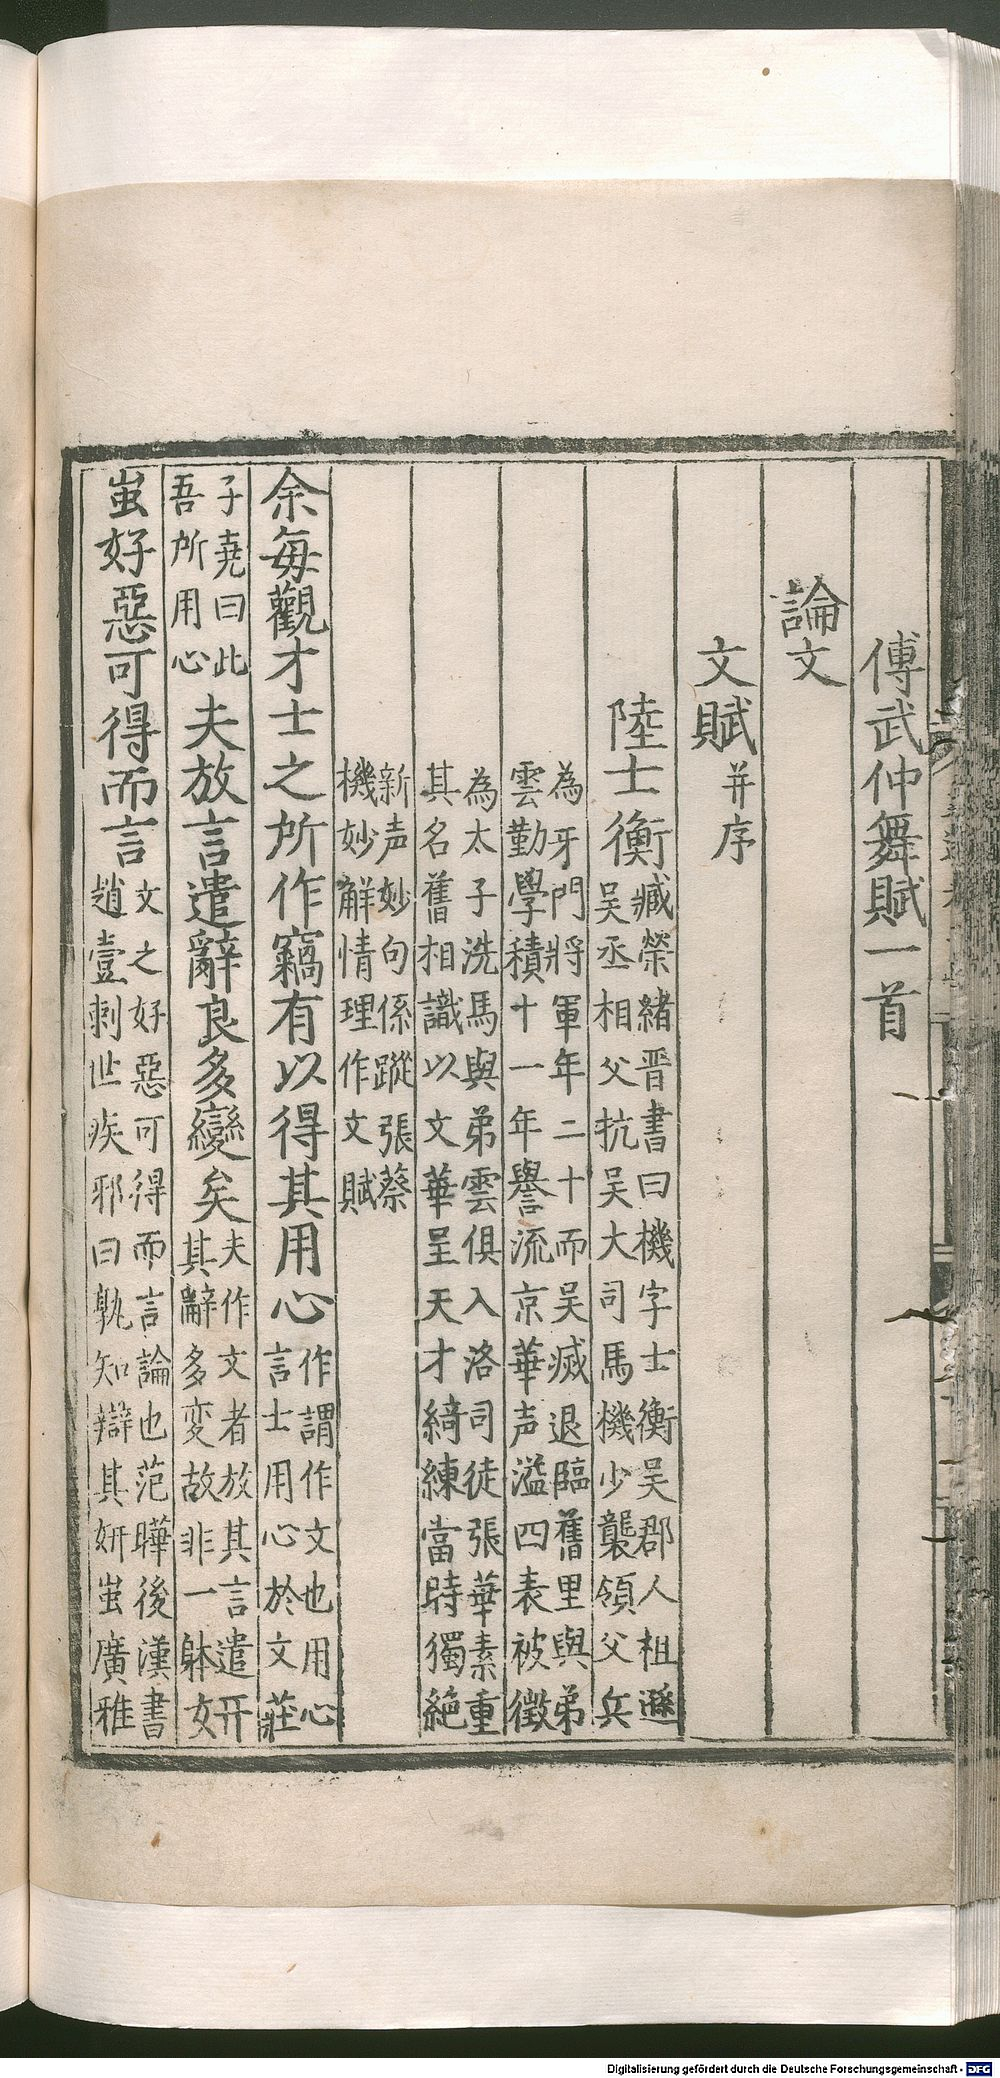 傅武仲舞賦一首
論文
文賦 并序
陸士衡 臧榮緒晋書曰機字士衡吴郡人祖遜
吴丞相父抗吴大司馬機少襲領父兵
為牙門將軍年二十而吴滅退臨舊里與弟
雲勤學積十一年譽流京華声溢四表被徵
為太子洗馬與弟雲俱入洛司徒張華素重
其名舊相識以文華呈天才綺練當時獨絕
新声妙句係蹤張蔡
機妙解情理作文賦
余每觀才士之所作竊有以得其用心 作謂作文也用心
言士用心於文莊
子堯曰此
吾所用心 夫放言遣辭良多變矣 夫作文者放其言遣
其辭多変故非一躰
妍
蚩好惡可得而言 文之好惡可得而言論也范曄後漢書
趙壹刺世疾邪曰孰知辯其妍蚩廣雅
Digitalisierung gefördert durch die Deutsche Forschungsgemeinschaft - DFG